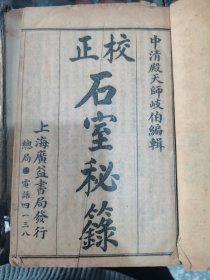 申清殿天師岐伯編輯
校正
石室秘籙
上海廣益書局發行
總局 電話四一三八